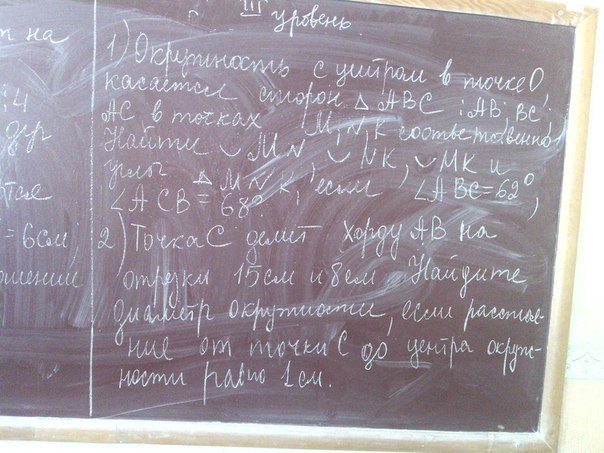 т на
: 4
дуг
ятся
= 6см;
ошении
III уровень
1) Окружность с центром в точке O
касается сторон △ ABC : AB, BC,
AC в точках M, N, K соответственно
Найти ◡ MN, ◡ NK, ◡ MK и
углы △ MNK, если ∠ ABC = 62°,
∠ ACB = 68°
2) Точка C делит хорду AB на
отрезки 15 см и 8 см. Найдите
диаметр окружности, если расстоя-
ние от точки C до центра окруж-
ности равно 1 см.